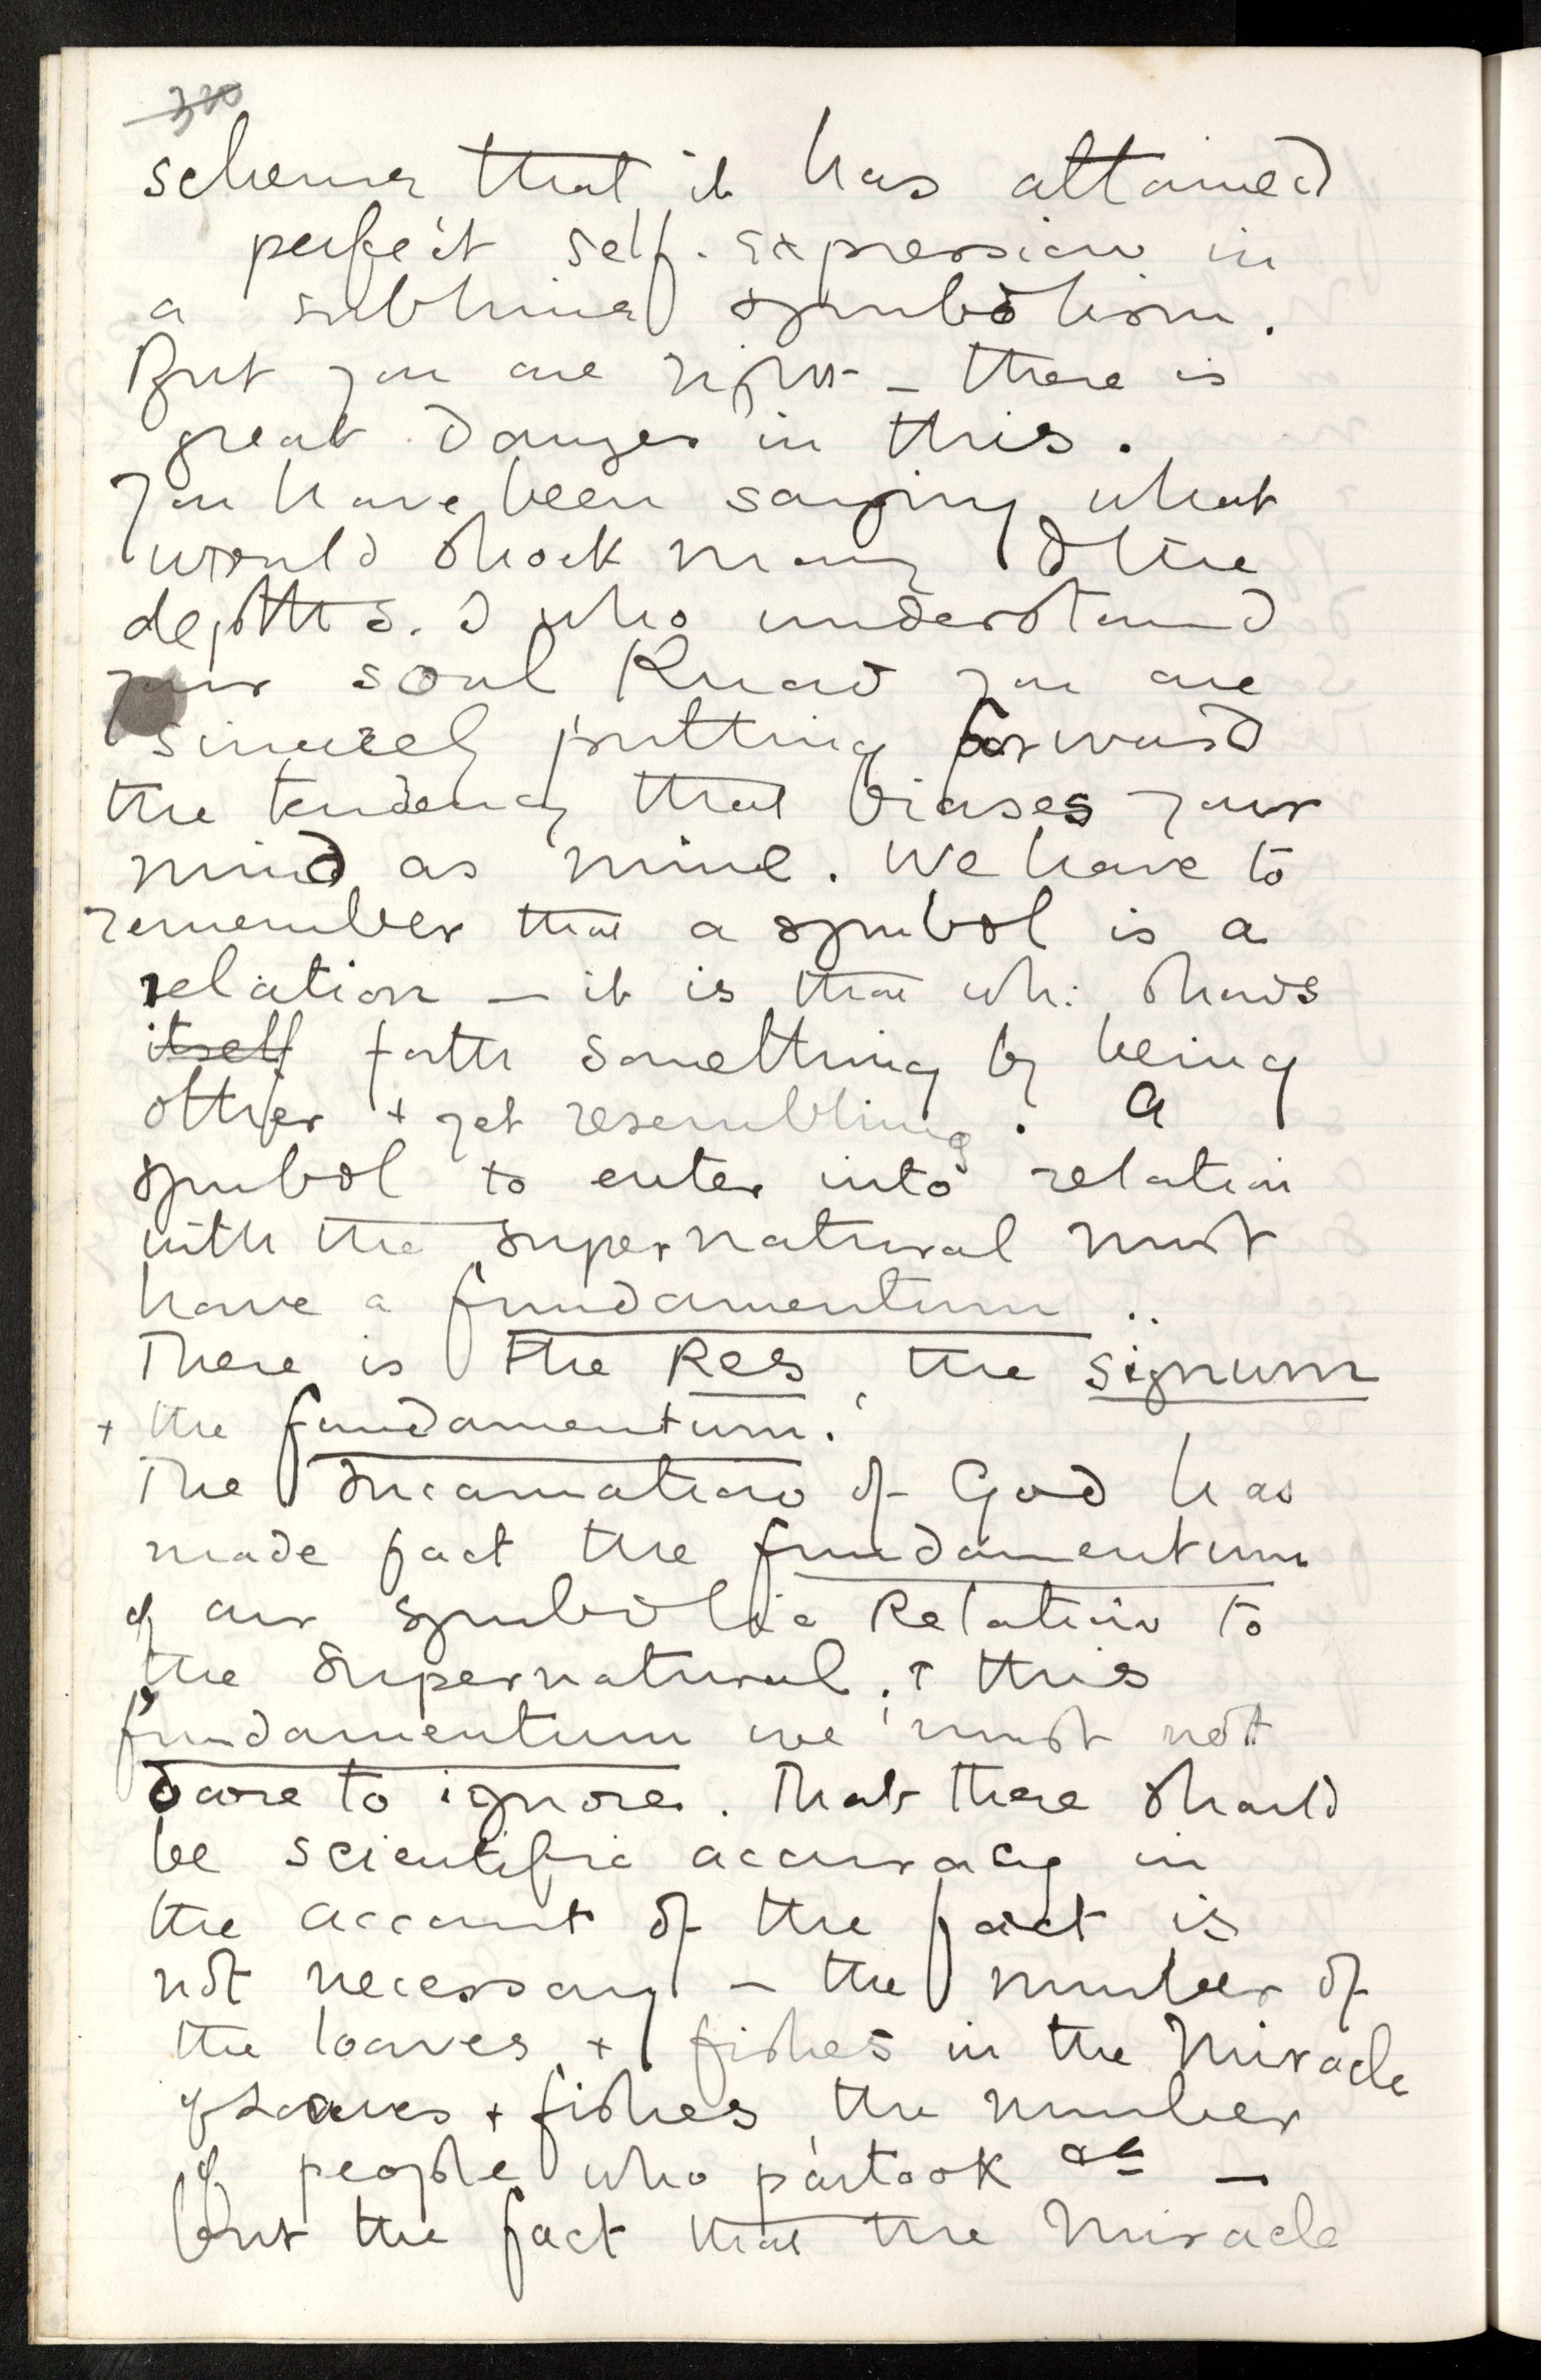 320
scheme that it has attained
perfect self-expression in
a sublime symbolism.
But you are right – there is
great danger in this.
You have been saying what
would shock many & the
depths. I who understand
your soul know you are
sincerely putting forward
the tendency that biases your
mind as mine. We have to
remember that a symbol is a
relation – it is that wh: shows
itself forth something by being
other + yet resembling. A
symbol to enter into relation
with the supernatural must
have a fundamentum..
There is the Res, the signum
+ the fundamentum.
The Incarnation of God has
made fact the fundamentum
of our symbolic Relation to
the Supernatural. + this
fundamentum we must not
dare to ignore. That there should
be scientific accuracy in
the account of the fact is
not necessary – the number of
the loaves + fishes in the Miracle
of Loaves + fishes, the number
of people who partook &c –
but the fact that the Miracle